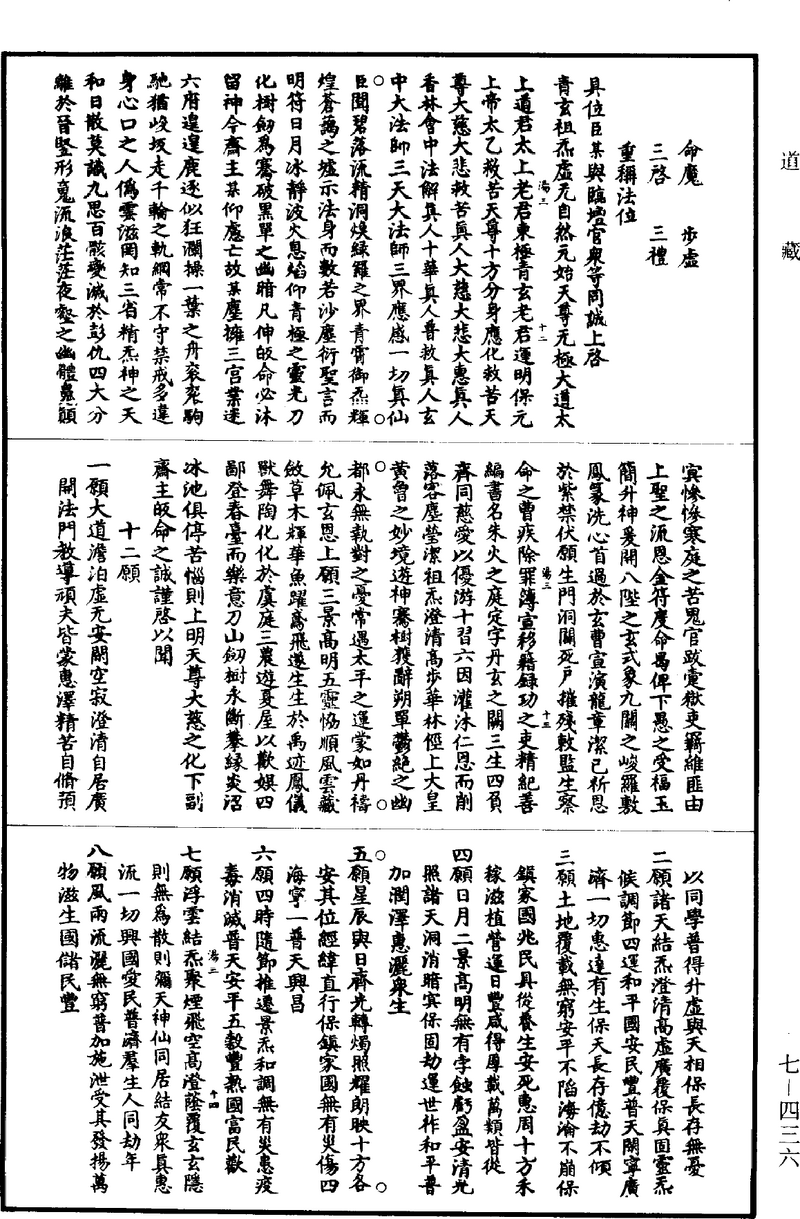 道藏
命魔　步虛
三啓　三禮
重稱法位
具位臣某與臨壇官衆等同誠上啓
青玄祖炁虛无自然元始天尊无極大道太
上道君太上老君東極青玄老君運明保元
上帝太乙救苦天尊十方分身應化救苦天
尊大慈大悲救苦真人大慈大悲大惠真人
香林會中法解真人十華真人普救真人玄
中大法師三天大法師三界應感一切真仙
臣聞碧落流精洞煥綠羅之界青霄御炁輝
煌蒼藹之墟示法身而數若沙塵衍聖言而
明符日月冰靜波火息焰仰青極之靈光刀
化樹劒爲騫破黑單之幽暗凡伸皈命必沐
留神今齋主某仰慮亡故某塵擁三宮業迷
六府遑遑鹿逐似狂瀾操一葉之舟衮衮駒
馳猶峻坂走千輪之軌綱常不守禁戒多違
身心口之人僞雲滋罔知三省精炁神之天
和日散莫識九思百骸變滅於彭仇四大分
離於晉竪形㝠流浪茫茫夜壑之幽體魄顛
寘慘慘寒庭之苦鬼官跂憲獄吏羈維匪由
上聖之流恩金符度命曷俾下愚之受福玉
簡升神爰開八陛之玄式象九關之峻羅敷
鳳篆洗心首過於玄曹宣演龍章潔已祈恩
於紫禁伏願生門洞闢死戶摧殘敕監生察
命之曹疾除罪簿宣移籍録功之吏精紀善
編書名朱火之庭定字丹玄之闕三生四負
齊同慈愛以優游十習六因灌沐仁恩而削
落客塵瑩潔祖炁澄清高步華林徑上大皇
黃曾之妙境遊神騫樹獲辭朔單鬱絶之幽
都永無執對之憂常遇太平之運蒙如丹禱
允佩玄恩上願三景高明五靈恊順風雲藏
斂草木輝華魚躍鳶飛遂生生於禹迹鳳儀
獸舞陶化化於虞庭三農遊夏屋以歡娛四
鄙登春臺而樂意刀山劒樹永斷攀緣炎沼
冰池俱停苦惱則上明天尊大慈之化下副
齋主皈命之誠謹啓以聞
十二願
一願大道澹泊虛无安閑空寂澄清自居廣
開法門教導頑夫皆蒙惠澤精苦自脩預
以同學普得升虛與天相保長存無憂
二願諸天結炁澄清高虛廣覆保真固靈炁
候調節四運和平國安民豐普天閑寧廣
濟一切惠逮有生保天長存億劫不傾
三願土地覆載無窮安平不陷海淪不崩保
鎮家國兆民具從養生安死惠周十方禾
稼滋植營運日豐咸得厚載萬類皆從
四願日月二景高明無有孛蝕虧盈安清光
照諸天洞消暗冥保固劫運世祚和平普
加潤澤惠灑衆生
五願星辰與日齊光轉燭照耀朗映十方各
安其位經緯直行保鎮家國無有災傷四
海寧一普天興昌
六願四時隨節推遷景炁和調無有災患疫
毒消滅普天安平五穀豐熟國富民歡
七願浮雲結炁聚煙飛空高澄蔭覆玄玄隱
則無爲散則彌天神仙同居結友衆真惠
流一切興國愛民普濟羣生人同劫年
八願風雨流灑無窮普加施泄受其發揚萬
物滋生國儲民豐
湯三
十二
湯三
十三
湯三
十四
七—四三六